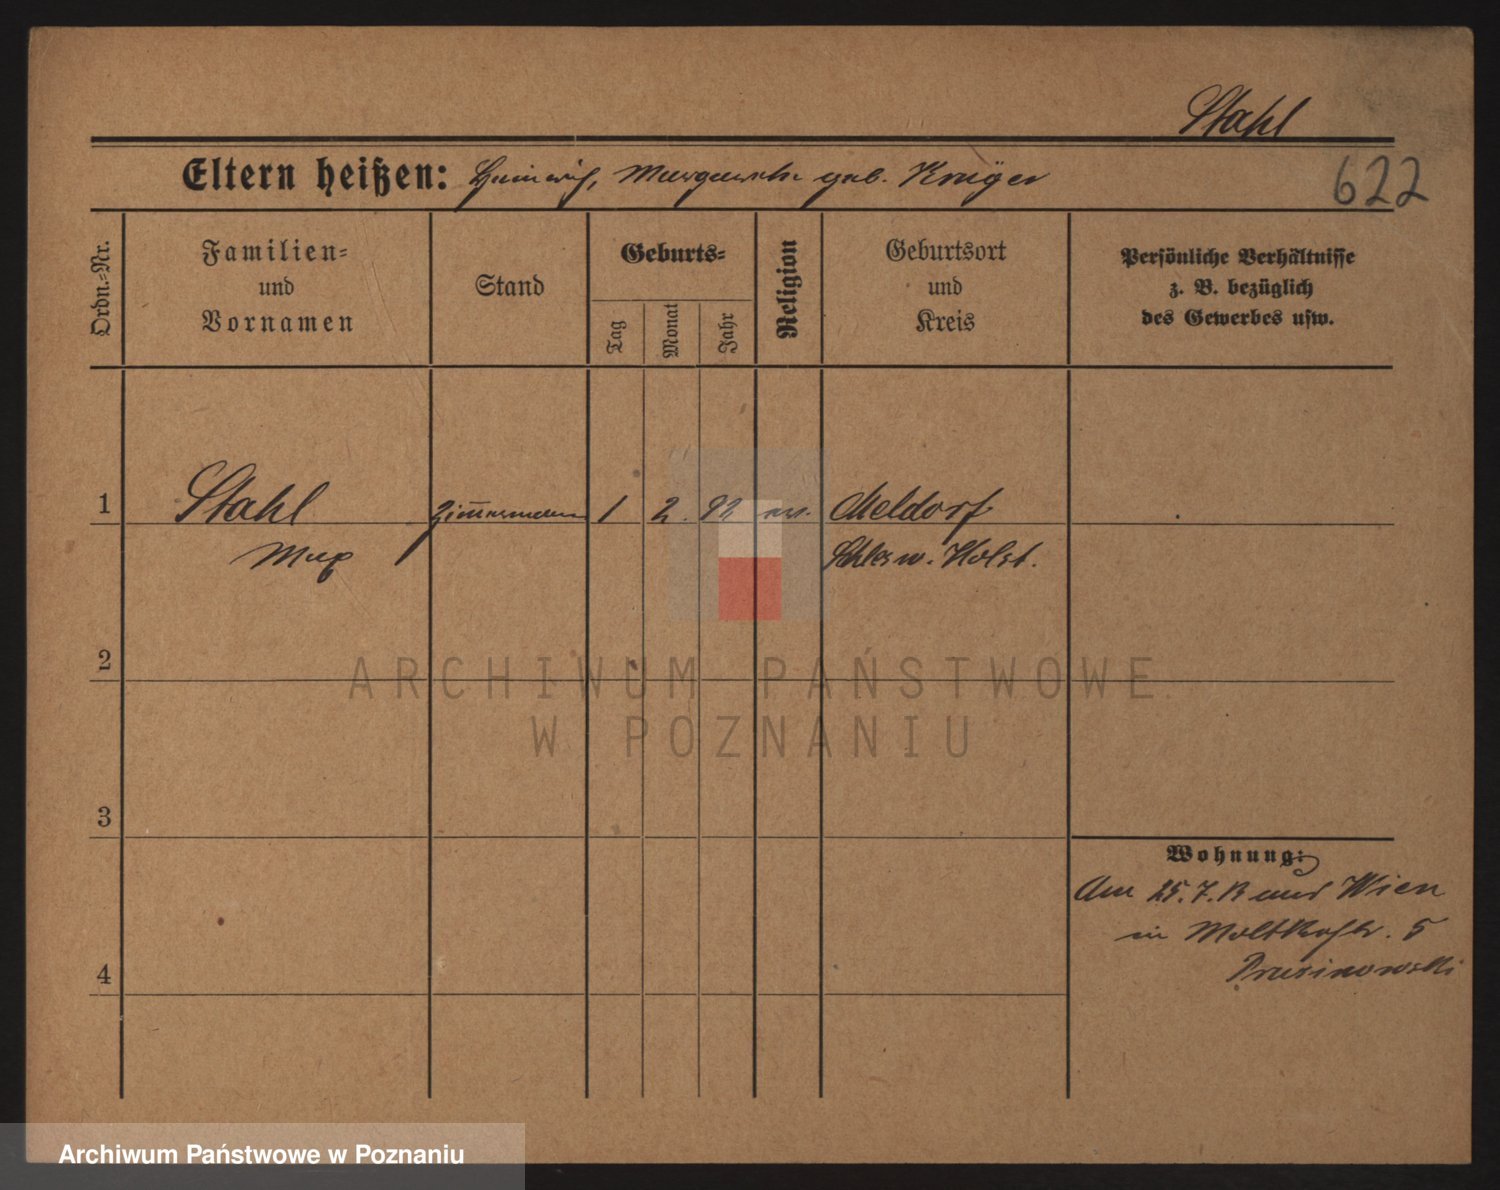 Stahl
Eltern heißen: Heinrich, Margarethe geb. Krüger
622
Ordn.-Nr.
Familien-
und
Vornamen
Stand
Geburts-
Tag
Monat
Jahr
Religion
Geburtsort
und
Kreis
Persönliche Verhältnisse
z. B. bezüglich
des Gewerbes usw.
1 Stahl Zim̄ermann 1 2. 92 ev. Meldorf
Max Schlesw. Holst.
2
ARCHIWUM PAŃSTWOWE
W POZNANIU
3
Wohnung:
Am 25.7.13 aus Wien
in Moltkestr. 5
Prusinowski
4
Archiwum Państwowe w Poznaniu